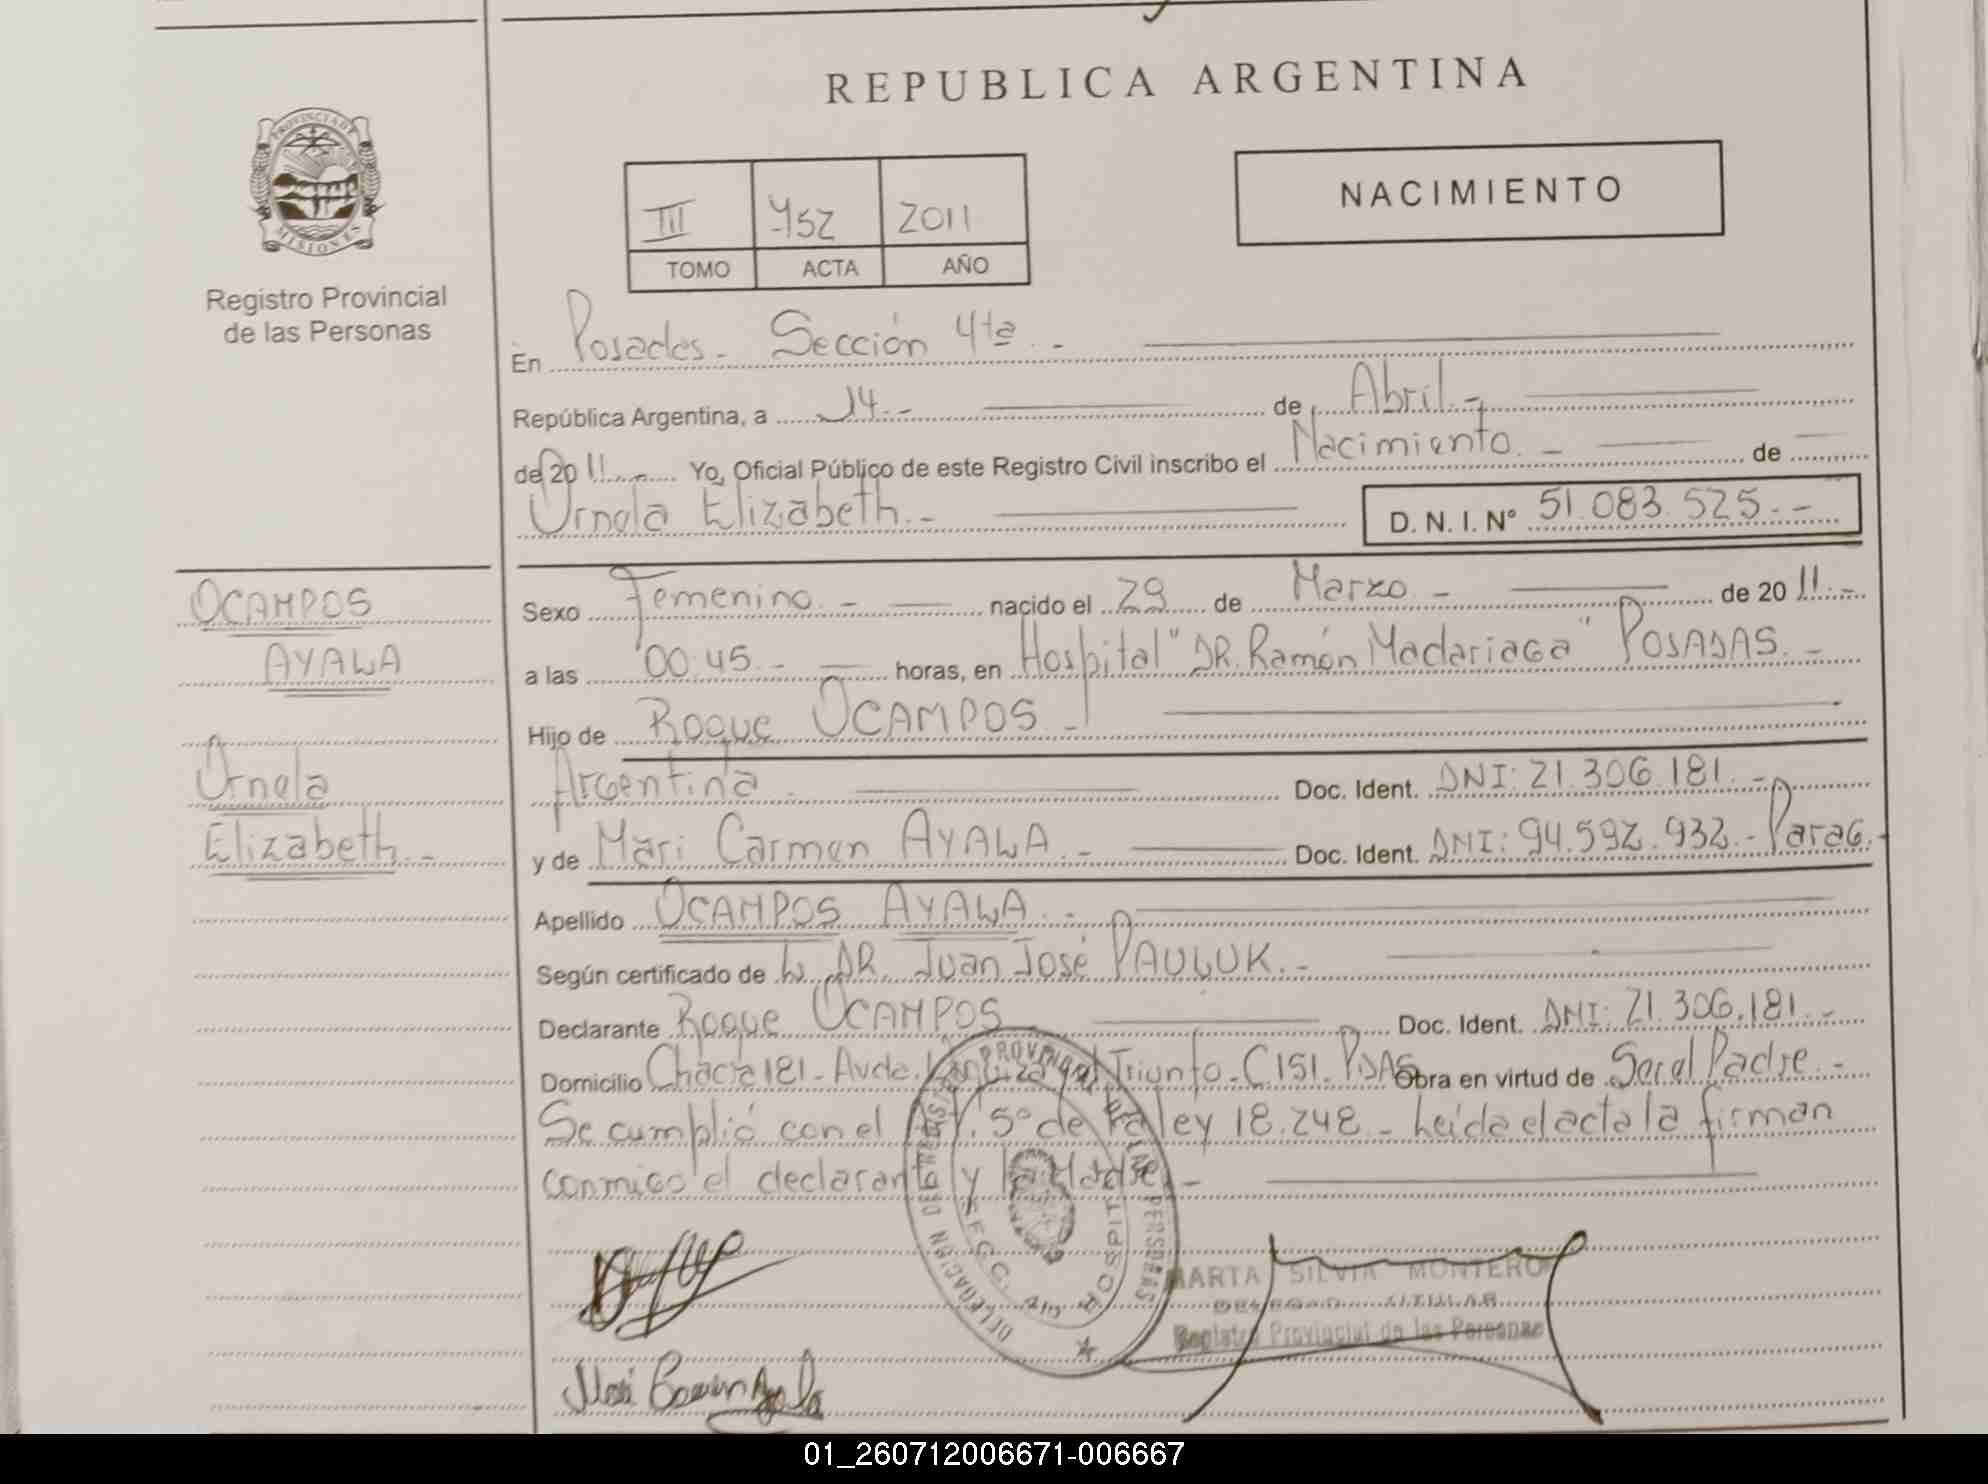 REPUBLICA ARGENTINA
PROVINCIA DE MISIONES
Registro Provincial
de las Personas
NACIMIENTO
III 452 2011
TOMO ACTA AÑO
En Posadas - Sección 4ta. -
República Argentina, a 14.- de Abril.-
de 2011.- Yo, Oficial Público de este Registro Civil inscribo el Nacimiento. - de
Ornela Elizabeth.- D. N. I. Nº 51.083.525.-
OCAMPOS
AYALA
Ornela
Elizabeth.-
Sexo Femenino. - nacido el 29 de Marzo - de 2011.-
a las 00:45.- horas, en Hospital "DR. Ramón Madariaga" POSADAS.-
Hijo de Roque OCAMPOS -
Argentina. Doc. Ident. DNI: 21.306.181.-
y de Mari Carmen AYALA.- Doc. Ident. DNI: 94.592.932.- Parag.
Apellido OCAMPOS AYALA.-
Según certificado de DR. Juan José PAULUK.-
Declarante Roque OCAMPOS Doc. Ident. DNI: 21.306.181.-
Domicilio Chacra 181 - Avda. Triunfo - C 151. PDAS Obra en virtud de Ser el Padre.-
Se cumplió con el Art. 5º de la ley 18.248 - Leída el acta la firman
conmigo el declarante y la Madre.-
DELEGACION REGISTRO PROVINCIAL DE LAS PERSONAS
SECC. 4ta HOSPITAL
MARTA SILVIA MONTERO
DELEGADA TITULAR
Registro Provincial de las Personas
Mari Carmen Ayala
01_260712006671-006667